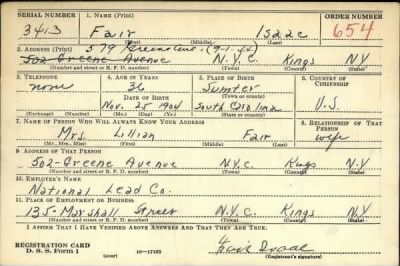 SERIAL NUMBER 1. NAME (Print) ORDER NUMBER
3413 Fair Isaac 654
(Last) (First) (Middle)
2. ADDRESS (Print) 579 Greene Ave. (9-1-44)
502 Greene Avenue N.Y.C. Kings N.Y
(Number and street or R. F. D. number) (Town) (County) (State)
3. TELEPHONE 4. AGE IN YEARS 5. PLACE OF BIRTH 6. COUNTRY OF CITIZENSHIP
none 36 Sumter
(Town or county)
DATE OF BIRTH
Nov. 25 1904 South Carolina U.S.
(Exchange) (Number) (Mo.) (Day) (Yr.) (State or country)
7. NAME OF PERSON WHO WILL ALWAYS KNOW YOUR ADDRESS 8. RELATIONSHIP OF THAT PERSON
Mrs. Lillian Fair wife
(Mr., Mrs., Miss) (First) (Middle) (Last)
9. ADDRESS OF THAT PERSON
502-Greene Avenue N.Y.C. Kings N.Y
(Number and street or R. F. D. number) (Town) (County) (State)
10. EMPLOYER'S NAME
National Lead Co.
11. PLACE OF EMPLOYMENT OR BUSINESS
135-Marshall Street N.Y.C. Kings N.Y
(Number and street or R. F. D. number) (Town) (County) (State)
I AFFIRM THAT I HAVE VERIFIED ABOVE ANSWERS AND THAT THEY ARE TRUE.
REGISTRATION CARD
D. S. S. Form 1 (over) 16-17105 Fair Isaac
(Registrant's signature)